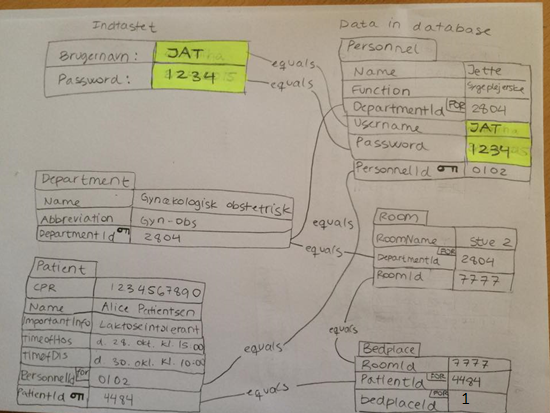 Indtastet
Brugernavn: JAT
Password: 1234
Data in database
Personnel
Name Jette
Function Sygeplejerske
DepartmentId FOR 2804
Username JAT
Password 1234
PersonnelId 0102
equals
equals
Department
Name Gynækologisk obstetrisk
Abbreviation Gyn-Obs
DepartmentId 2804
equals
equals
Room
RoomName Stue 2
DepartmentId FOR 2804
RoomId 7777
Patient
CPR 1234567890
Name Alice Patientsen
ImportantInfo Laktoseintolerant
TimeofHos d. 28. okt. kl. 15:00
TimeofDis d. 30. okt. kl. 10:00
PersonnelId FOR 0102
PatientId 4484
equals
equals
equals
Bedplace
RoomId 7777
PatientId FOR 4484
bedplaceId 1